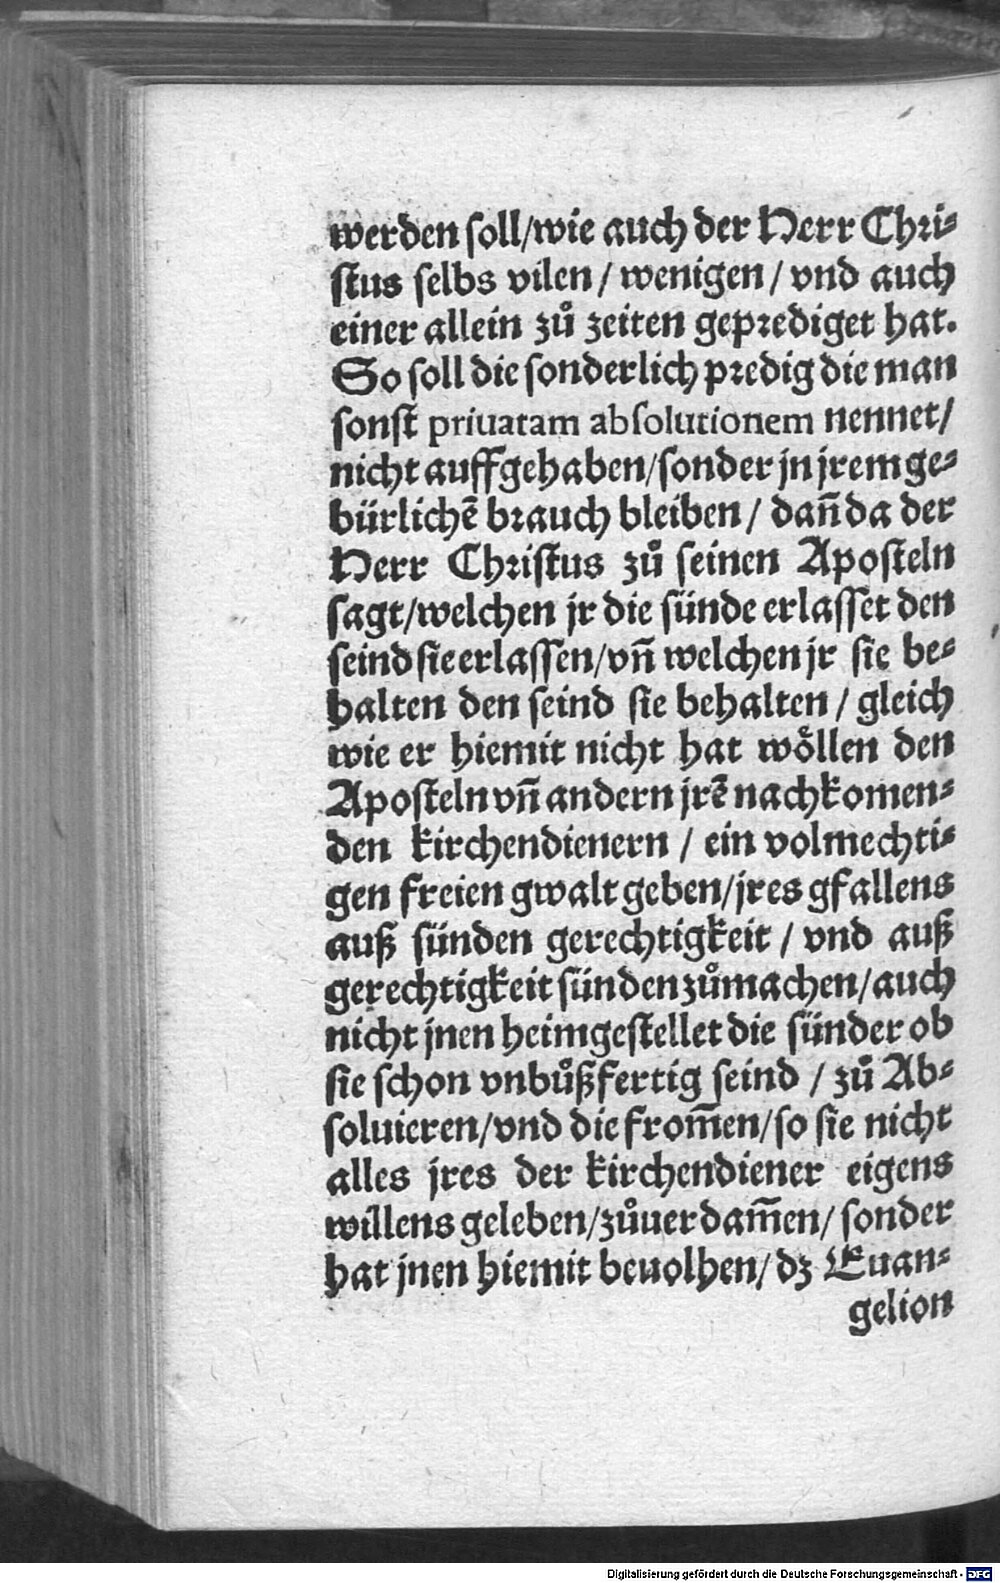 werden soll/wie auch der Herr Chri⸗
stus selbs vilen / wenigen / vnd auch
einer allein zů zeiten geprediget hat.
So soll die sonderlich predig die man
sonst priuatam absolutionem nennet/
nicht auffgehaben/sonder jn jrem ge⸗
bürlichẽ brauch bleiben / dañ da der
Herr Christus zů seinen Aposteln
sagt/welchen jr die sünde erlasset den
seind sie erlassen/vñ welchen jr sie be⸗
halten den seind sie behalten / gleich
wie er hiemit nicht hat wöllen den
Aposteln vñ andern jrẽ nachkomen⸗
den kirchendienern / ein volmechti⸗
gen freien gwalt geben/jres gfallens
auß sünden gerechtigkeit / vnd auß
gerechtigkeit sünden zůmachen/auch
nicht jnen heimgestellet die sünder ob
sie schon vnbůßfertig seind / zů Ab⸗
soluieren/vnd die from̃en/so sie nicht
alles jres der kirchendiener eigens
willens geleben/zůuerdam̃en/sonder
hat jnen hiemit beuolhen/dz Euan⸗
gelion
Digitalisierung gefördert durch die Deutsche Forschungsgemeinschaft - DFG